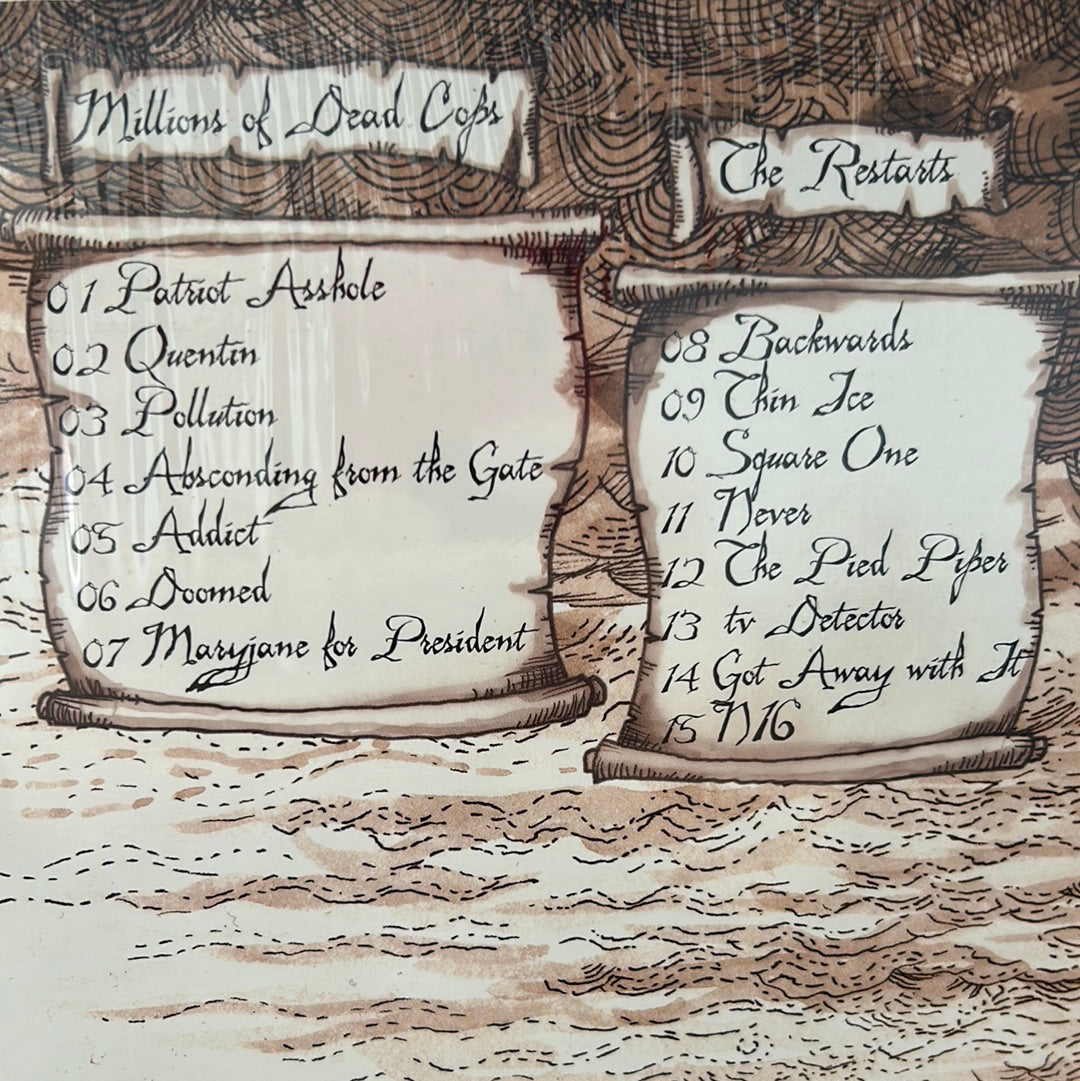 Millions of Dead Cops
01 Patriot Asshole
02 Quentin
03 Pollution
04 Absconding from the Gate
05 Addict
06 Doomed
07 Maryjane for President
The Restarts
08 Backwards
09 Thin Ice
10 Square One
11 Never
12 The Pied Piper
13 tv Detector
14 Got Away with It
15 N16